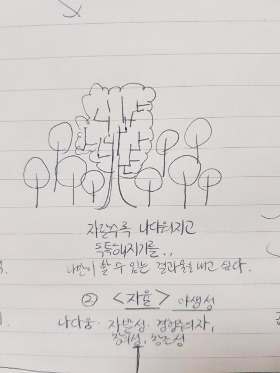 자랄수록 나다워지고
독특해지기를..
나만이 할 수 있는 결과물을 내고 싶다.
② <자율> 야생성
나다움·자발성·경험주의자,
창의성, 창조성